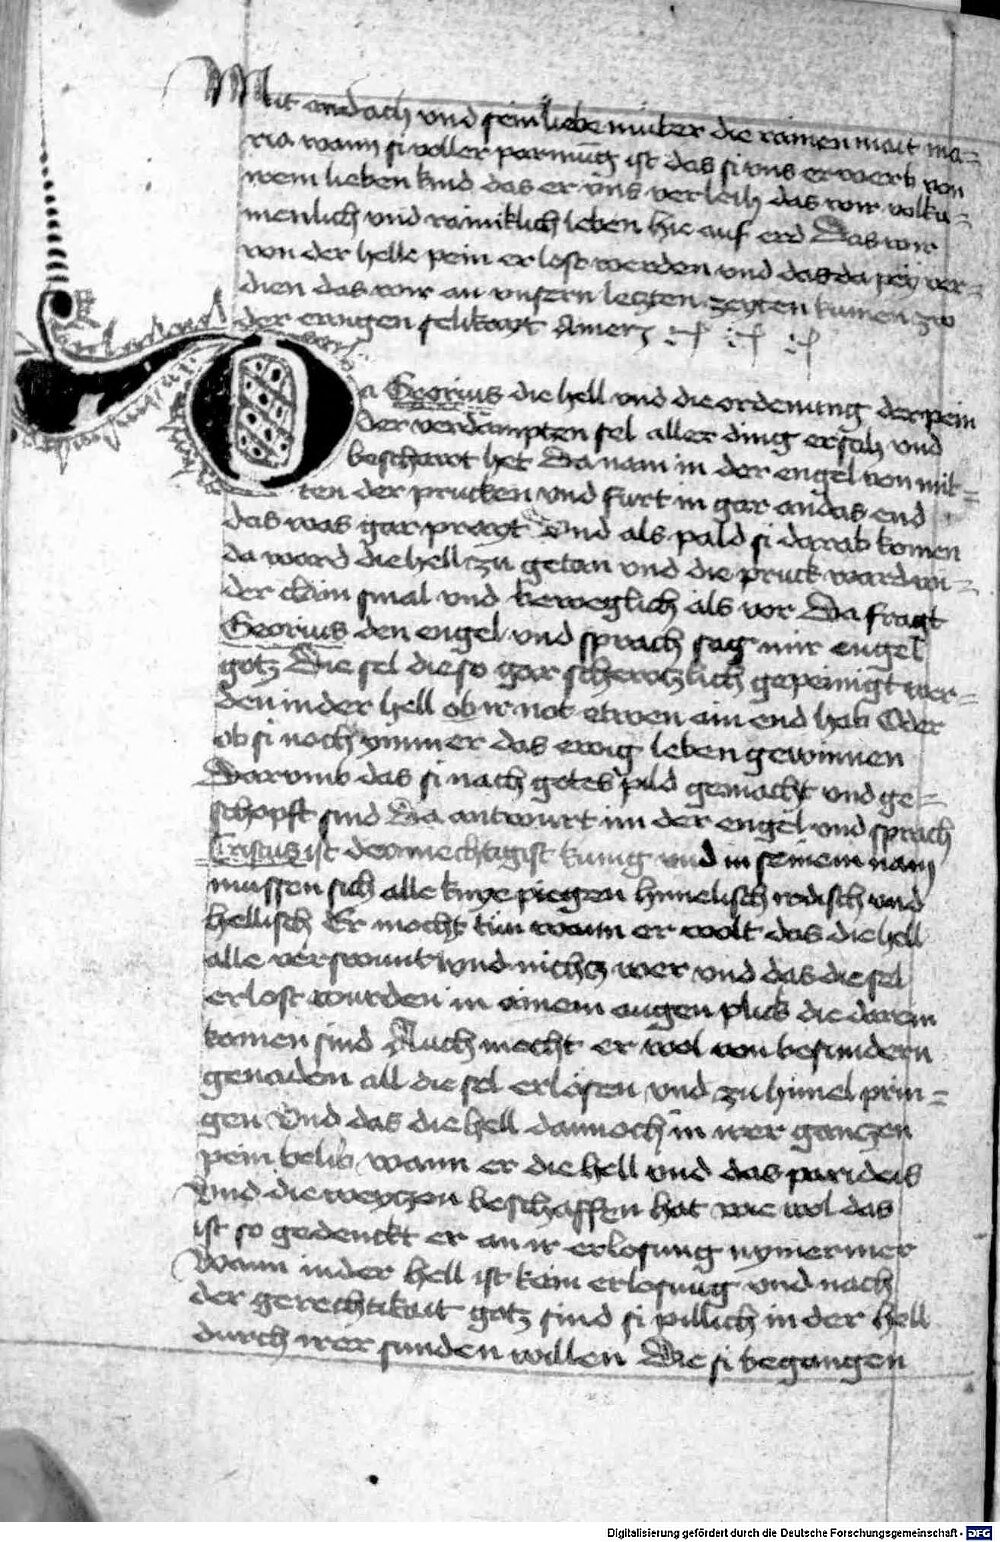 Mit andach und sein liebe muter die rainen mait ma=
ria wann si voller parmu̅g ist das si uns erwerb von
irem lieben kind das er uns verleih das wir volku=
menlich und rainiklich leben hie auf erd Das wir
von der helle pein erlost werden und das da pey ver=
dien das wir an unsern leczten zeyten kumen zw
der ewigen selikayt Amen
Da Georius die hell und die ordenung der pein
der verdampten sel aller ding ersah und
beschawt het Da nam in der engel von mit=
ten der prucken und furt in gar an das end
das was gar prayt Und als pald si darab komen
da ward die hell zu getan und die pruck ward wi=
der clain smal und beweglich als vor Da fragt
Georius den engel und sprach sag mir engel
gotz Die sel die so gar scherczlich gepeinigt wer=
den in der hell ob ir not etwen ain end hab Oder
ob si noch ymmer das ewig leben gewinnen
Darumb das si nach gotes pild gemacht und ge=
schopft sind Da antwurt im der engel und sprach
Cristus ist der mechtigist kunig und in seinem nam
mussen sich alle knye piegen himelisch irdisch und
hellisch Er mocht tun wann er wolt das die hell
alle verswunt und nichcz wer und das die sel
erlost wurden in ainem augen plick die darein
komen sind Auch mocht er wol von besundern
genaden all die sel erlosen und zu himel prin=
gen Und das die hell dannoch in irer ganczen
pein belib wann er die hell und das parideis
Und die weyczen beschaffen hat wie wol das
ist so gedenckt er an ir erlosung nymer mer
Wann in der hell ist kain erlosung und nach
der gerechtikait gotz sind si pillich in der hell
durch irer sunden willen Die si begangen
Digitalisierung gefördert durch die Deutsche Forschungsgemeinschaft - DFG